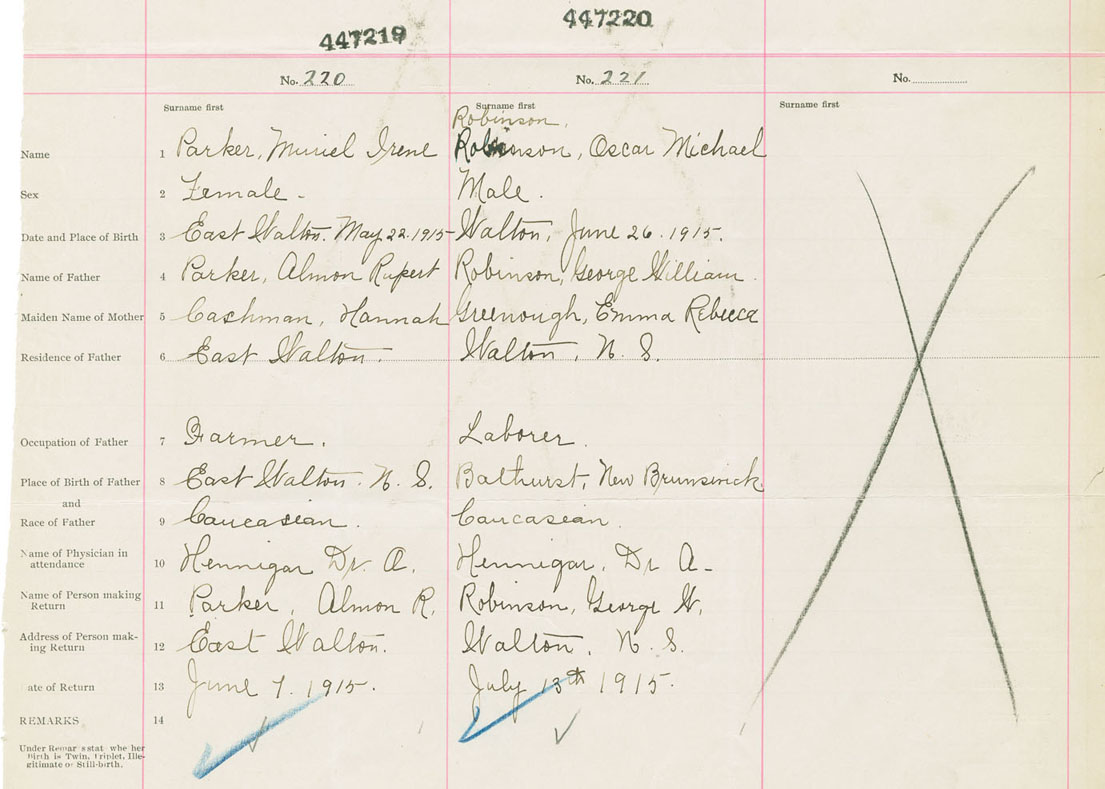 447219 447220
No. 220 No. 221 No.
Surname first Surname first Surname first
Robinson.
Name 1 Parker, Muriel Irene Robinson, Oscar Michael
Sex 2 Female. Male.
Date and Place of Birth 3 East Walton. May 22. 1915 Walton, June 26. 1915.
Name of Father 4 Parker, Almon Rupert Robinson, George William.
Maiden Name of Mother 5 Cashman, Hannah Greenough, Emma Rebecca
Residence of Father 6 East Walton. Walton, N. S.
Occupation of Father 7 Farmer. Laborer.
Place of Birth of Father 8 East Walton. N. S. Bathurst, New Brunswick
and
Race of Father 9 Caucasian. Caucasian.
Name of Physician in
attendance 10 Hennigar Dr. A. Hennigar, Dr A-
Name of Person making
Return 11 Parker, Almon R. Robinson, George W.
Address of Person mak-
ing Return 12 East Walton. Walton, N. S.
ate of Return 13 June 7. 1915. July 13th 1915.
REMARKS 14
Under Remar s stat whe her
Birth is Twin, Triplet, Ille-
gitimate or Still-birth.